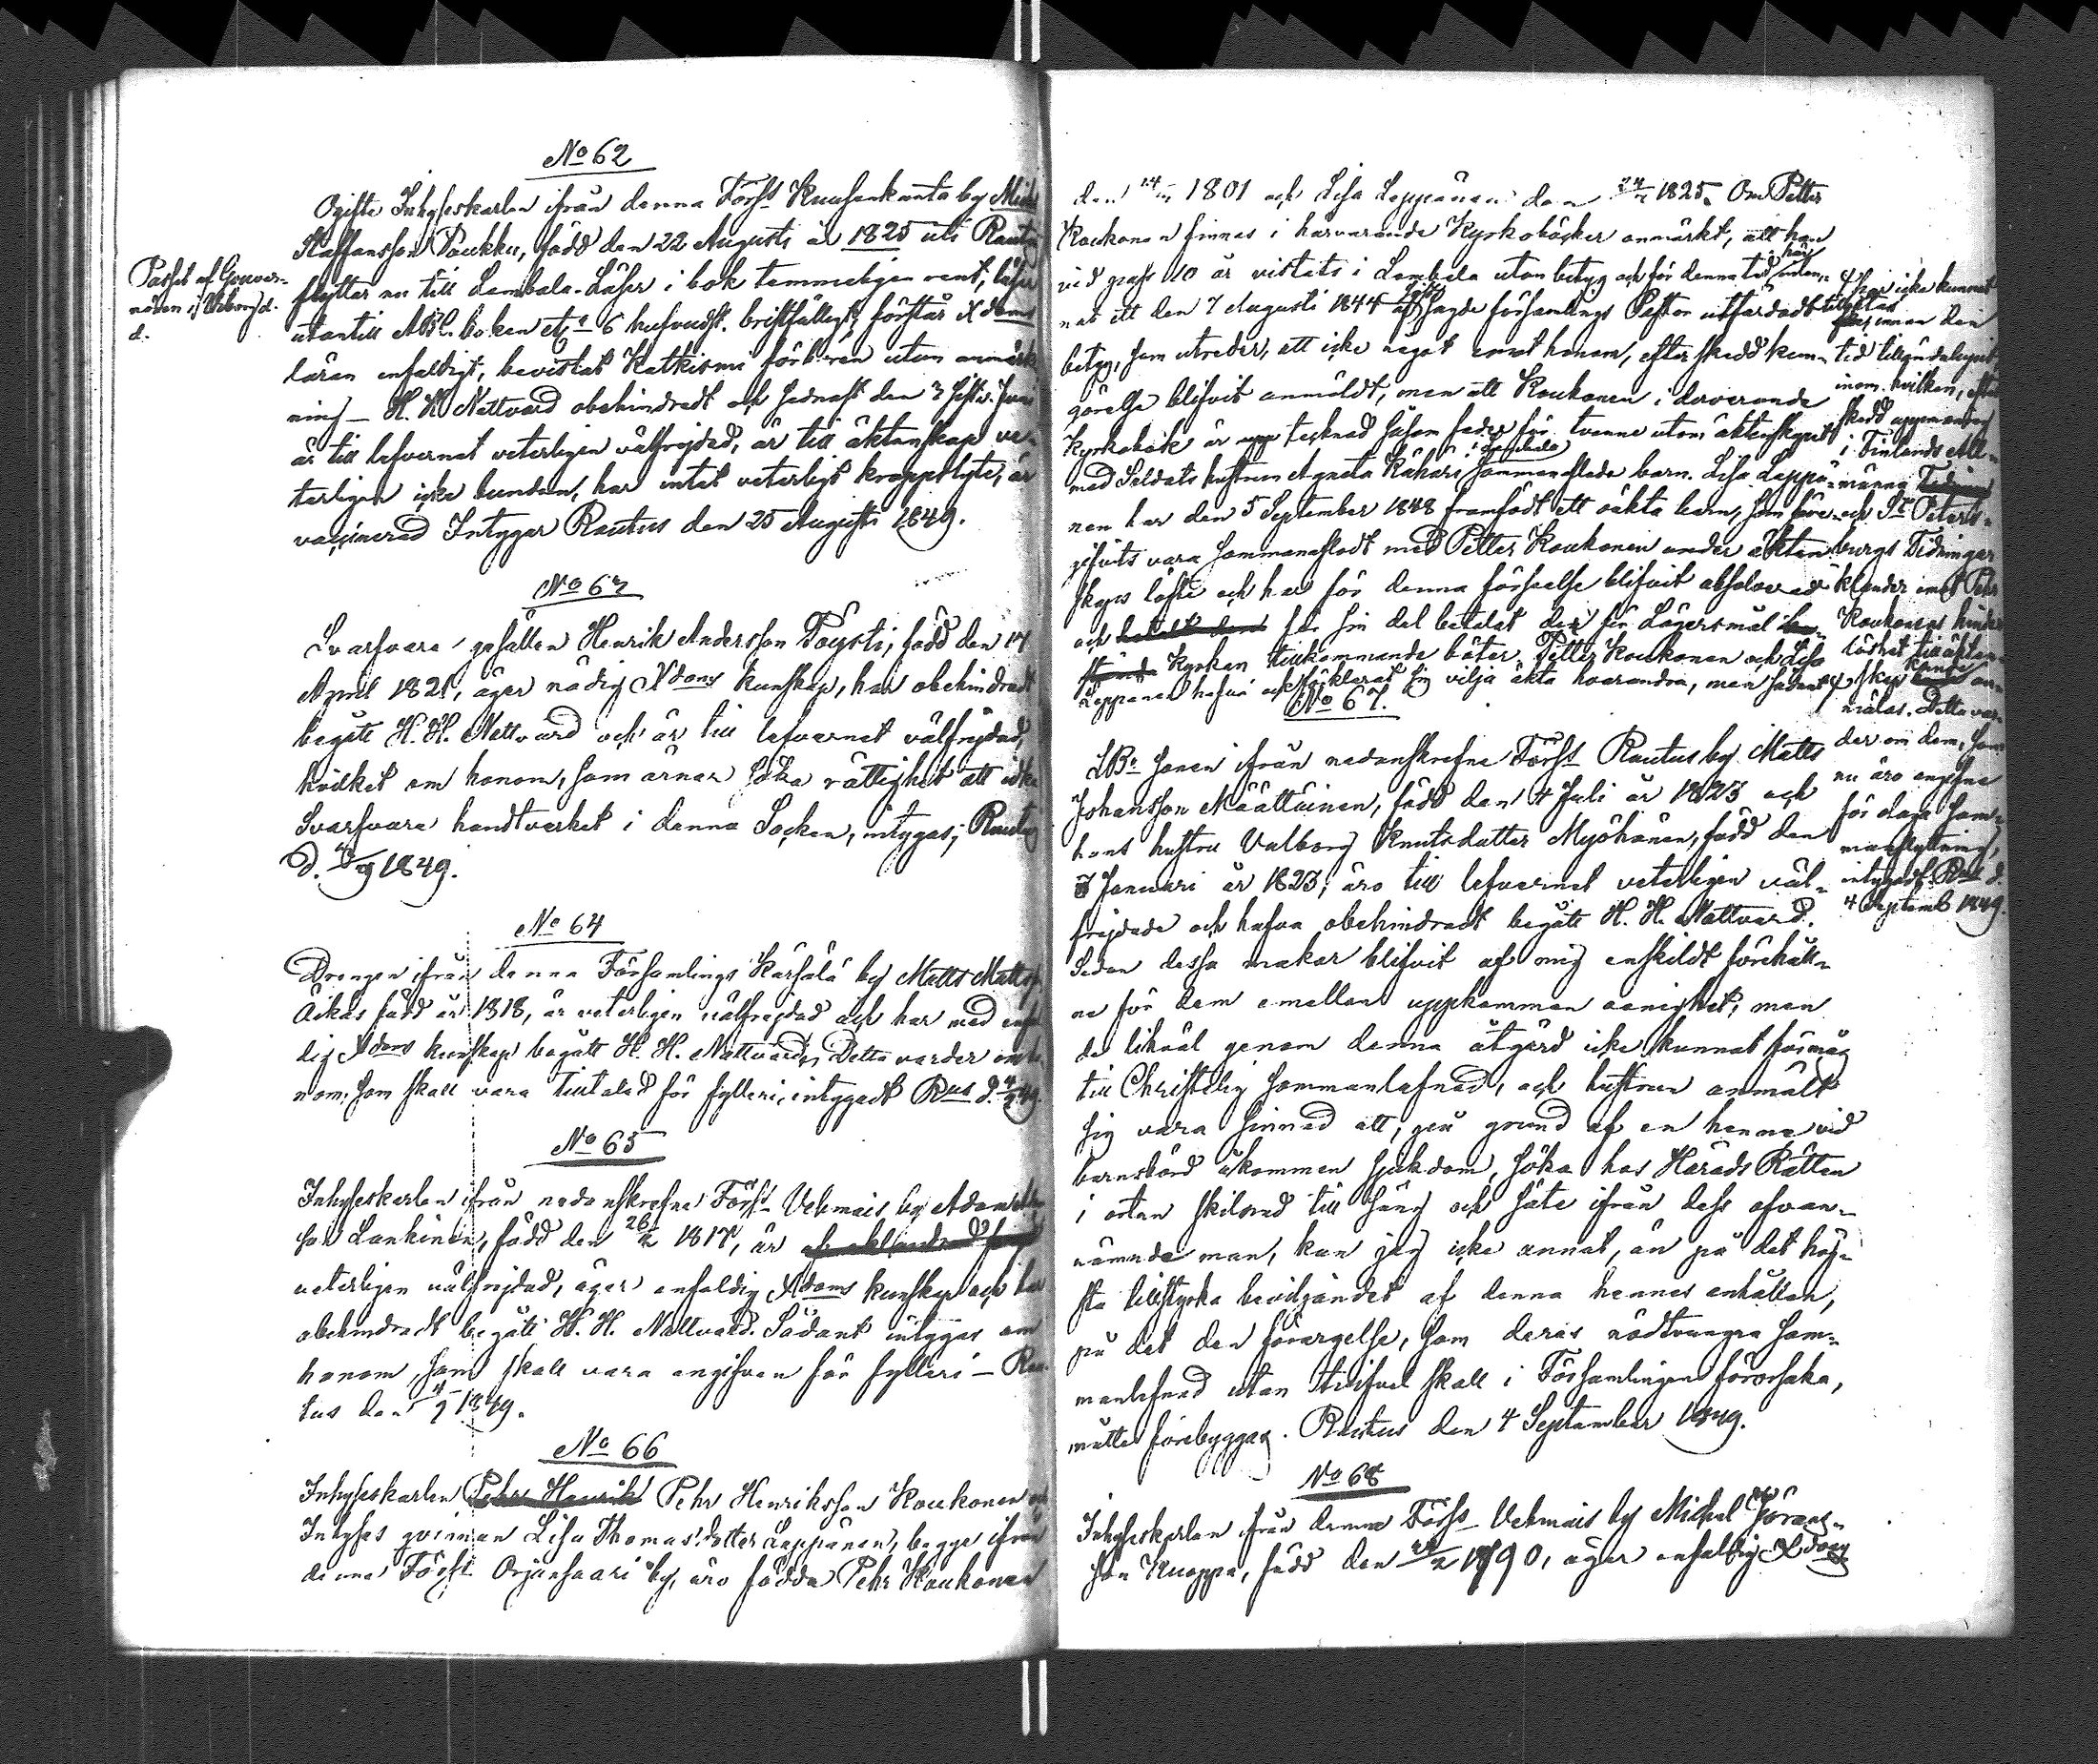 No 62
Ogifte Inhyseskarlen ifrån denna Förs. Kuusenkanta by
Staffansson Paukku, född den 22 Augusti år 1825 uti Rautu
flyttar nu till Lembala. Läser i bok temmeligen rent, läser
utantill ABC boken 6 hufvudst. bristfälligt, förstår Xdoms
läran enfaldigt, bevistat Katkismi förhören utan anmärk
ning — H. H. Nattvard obehindradt och sednast den 3
är till lefvernet veterligen välfrejdad, är till äktenskap ve-
terligen icke bunden, har intet veterligt kroppslyte, är
vaccinerad Intygar Rautus den 25 Augusti 1849.
Passet af Gouver-
nören i Viborg d.
d.
No 63
Svarfvare gesällen Henrik Andersson Pöysti, född den 17
April 1821, äger nödig Xdoms kunskap, har obehindradt
begått H. H. Nattvard och är till lefvernet välfrejdad,
hvilket om honom, som ärnar söka rättighet att idka
Svarfvare handtverket i denna Socken, intygas; Rautus
d. 4/9 1849.
No 64
Drengen ifrån denna Församlings Karsala by Matts Matts
Äikäs född år 1818, är veterligen välfrejdad och har med enfal
dig Xdoms kunskap begått H. H. Nattvard. Detta varder om ho
nom, som skall vara tilltalad för fylleri, intygadt Rus d. 4/9 49.
No 65
Inhyseskarlen ifrån nedanskrefne Förs. Vehmais by Adam
son Lankinen, född den 26/12 1817, är
veterligen välfrejdad, äger enfaldig Xdoms kunskap och har
obehindradt begått H. H. Nattvard. Sådant intygas om
honom, som skall vara angifven för fylleri — Rau
tus den 4/9 1849.
No 66
Inhyseskarlen Pehr Henrik Pehr Henriksson Koukonen och
Inhyses qvinnan Lisa Thomas dotter Leppänen, begge ifrån
denna Förs. Orjansaari by, äro födda Pehr Koukonen
den 14/ 1801 och Lisa Leppänen den 24/ 1825. Om Petter
Koukonen finnes i härvarande Kyrkoböcker anmärkt, att han
vid pass 10 år vistats i Lembala utan betyg och för denna tid här inlem-
nat ett den 7 Augusti 1844 af sagde församlings Pastor utfärdadt
betyg, som utreder, att icke något emot honom, efter skedd kun-
görelse blifvit anmäldt, men att Koukonen i derverande
Kyrkobok är upp tecknad såsom fader för tvenne utom äktenskapet
med Soldats hustrun Agneta Kähäri i Lembala sammanaflade barn. Lisa Leppä-
nen har den 5 September 1848 framfödt ett oäkta barn, som före-
gifvits vara sammanafladt med Petter Koukonen under äkten
skaps löfte och har för denna förseelse blifvit absolverad
och för sin del betalat den för Lägersmål
Kyrkan tillkommande böter. Petter Koukonen och Lisa
Leppänen hafva ock förklarat sig vilja äkta hvarandra, men sådant
har icke kunnat
tillåtas
innan den
tid tilländalupit
inom hvilken, efter
skedd uppmaning
i Finlands All-
männa Tidning
och St Peters-
burgs Tidningar
klander emot Pehr
Koukonens hinder
löshet till äkten
skap kunde an-
mälas. Detta var-
der om dem, som
nu äro angifne
för olaga sam-
manflyttning,
intygadt. Rus d.
4 Septemb 1849.
No 67.
Bonden ifrån nedanskrefne Förs. Rautus by Matts
Johansson Määttänen, född den 4 Juli år 1823 och
hans hustru Valborg Knutsdotter Myöhänen, född den
7 Januari år 1823, äro till lefvernet veterligen väl-
frejdade och hafva obehindradt begått H. H. Nattvard.
Sedan dessa makar blifvit af mig enskildt förehåll-
ne för dem emellan uppkommen oenighet, men
de likväl genom denna åtgärd icke kunnat förmås
till Christelig sammanlefnad, och hustrun anmält
sig vara sinnad att, på grund af en henne vid
barnsbörd åkommen sjukdom, söka hos Härads Rätten
i orten skilnad till säng och säte ifrån dess ofvan-
nämnde man, kan jag icke annat, än på det hög-
sta tillstyrka beviljandet af denna hennes anhållan,
på det den förargelse, som deras nödtvungna sam-
manlefnad utan tvifvel skall i Församlingen förorsaka,
måtte förebyggas. Rautus den 4 September 1849.
No 68
Inhyseskarlen ifrån denna Förs. Vehmais by Michel Jörans-
son Kuoppa, född den 1790, äger enfaldig Xdoms